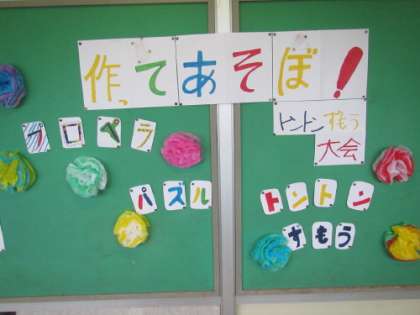 作ってあそぼ!
トントンすもう
大会
プロペラ
パズル
トントン
すもう